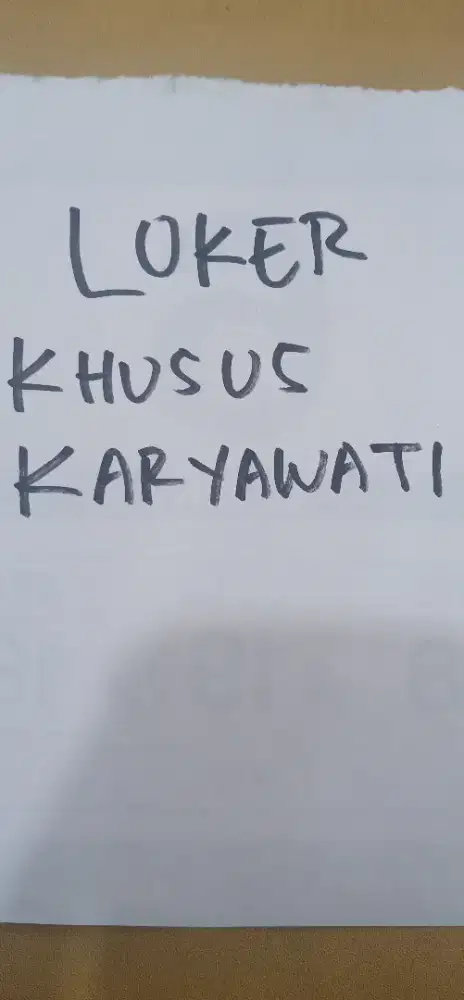 LOKER
KHUSUS
KARYAWATI